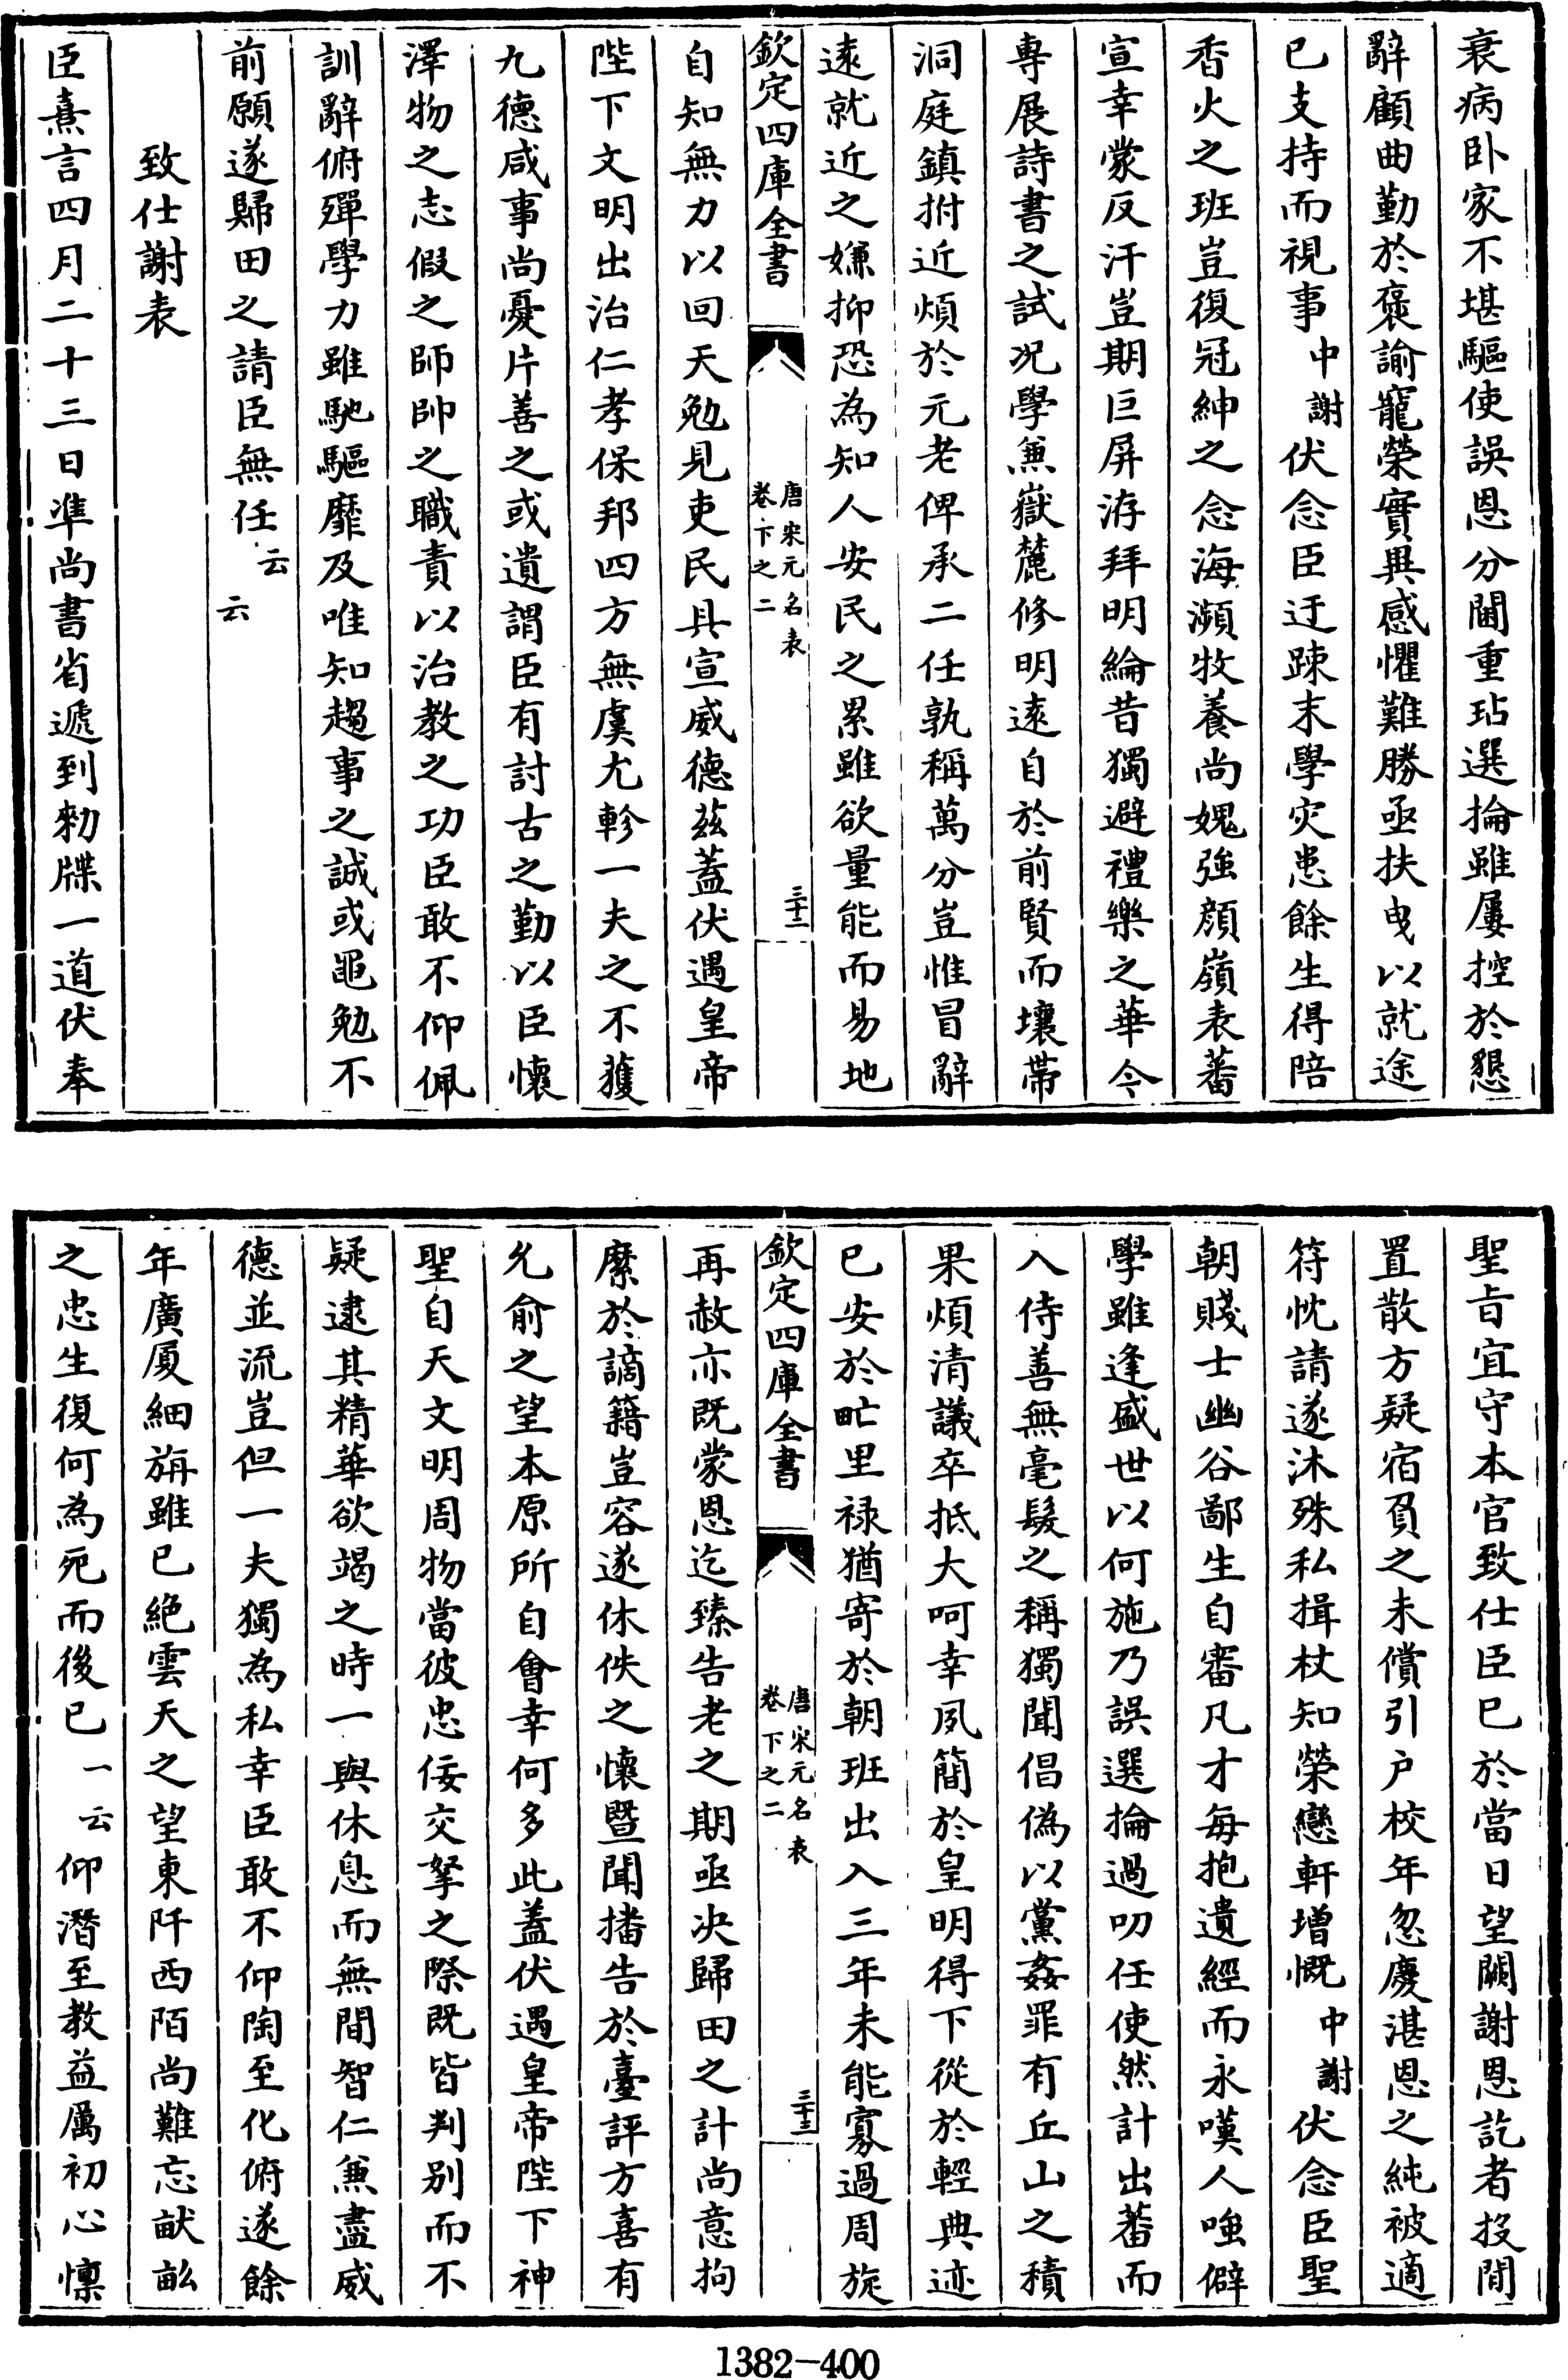 衰病卧家不堪驅使誤恩分閫重玷選掄雖屢控於懇
辭顧曲勤於褒諭寵榮實異感懼難勝亟扶曳以就途
已支持而視事中謝伏念臣迂踈末學灾患餘生得陪
香火之班豈復冠紳之念海瀕牧養尚媿強顔嶺表蕃
宣幸蒙反汗豈期巨屏洊拜明綸昔獨避禮樂之華今
專展詩書之試况學兼嶽麓修明逺自於前賢而壤帶
洞庭鎮拊近煩於元老俾承二任孰稱萬分豈惟冒辭
逺就近之嫌抑恐為知人安民之累雖欲量能而易地
欽定四庫全書
唐宋元名表
卷下之二
三十二
自知無力以回天勉見吏民具宣威德茲蓋伏遇皇帝
陛下文明出治仁孝保邦四方無虞尤軫一夫之不獲
九德咸事尚憂片善之或遺謂臣有討古之勤以臣懷
澤物之志假之師帥之職責以治教之功臣敢不仰佩
訓辭俯殫學力雖馳驅靡及唯知趨事之誠或黽勉不
前願遂歸田之請臣無任云云
致仕謝表
臣熹言四月二十三日凖尚書省遞到勑牒一道伏奉
聖旨宜守本官致仕臣已於當日望闕謝恩訖者投閒
置散方疑宿負之未償引户校年忽慶湛恩之純被適
符忱請遂沐殊私揖杖知榮戀軒增慨中謝伏念臣聖
朝賤士幽谷鄙生自審凡才每抱遺經而永嘆人嗤僻
學雖逢盛世以何施乃誤選掄過叨任使然計出蕃而
入侍善無毫髮之稱獨聞倡偽以黨姦罪有丘山之積
果煩清議卒抵大呵幸夙簡於皇明得下從於輕典迹
已安於甿里禄猶寄於朝班出入三年未能寡過周旋
欽定四庫全書
唐宋元名表
卷下之二
三十三
再赦亦既蒙恩迄臻告老之期亟决歸田之計尚意拘
縻於謫籍豈容遂休佚之懷暨聞播告於臺評方喜有
允俞之望本原所自會幸何多此蓋伏遇皇帝陛下神
聖自天文明周物當彼忠佞交拏之際既皆判别而不
疑逮其精華欲竭之時一與休息而無間智仁兼盡威
德並流豈但一夫獨為私幸臣敢不仰陶至化俯遂餘
年廣厦細旃雖已絶雲天之望東阡西陌尚難忘畎畝
之忠生復何為死而後已一云仰濳至教益厲初心懍
1382-400